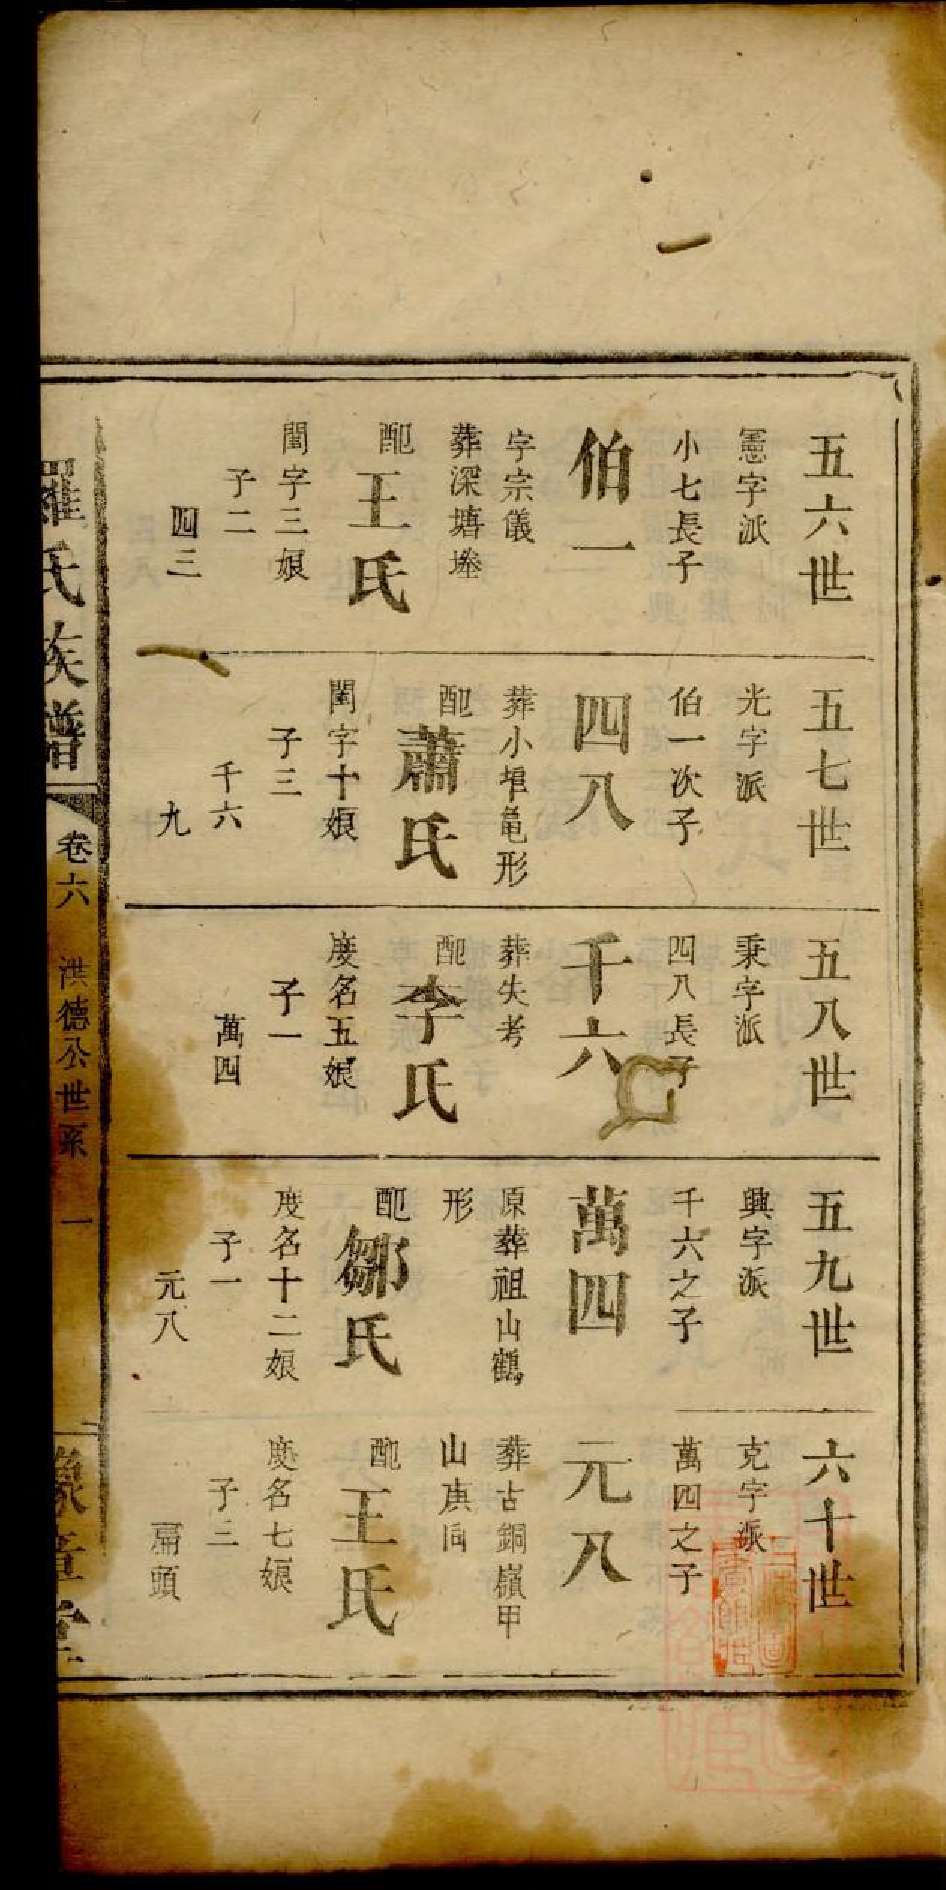 五六世
憲字派
小七長子
伯一
字宗儀
葬深塘塝
配
王氏
閨字三娘
子二
四三
五七世
光字派
伯一次子
四八
葬小埠黾形
配
蕭氏
閨字十娘
子三
千六
九
五八世
秉字派
四八長子
千六
葬失考
配
李氏
度名五娘
子一
萬四
五九世
興字派
千六之子
萬四
原葬祖山鶴
形
配
鄒氏
度名十二娘
子一
元八
六十世
克字派
萬四之子
元八
葬古銅嶺甲
山庚向
配
王氏
度名七娘
子三
扁頭
羅氏族譜
卷六
洪德公世系
一
豫章堂